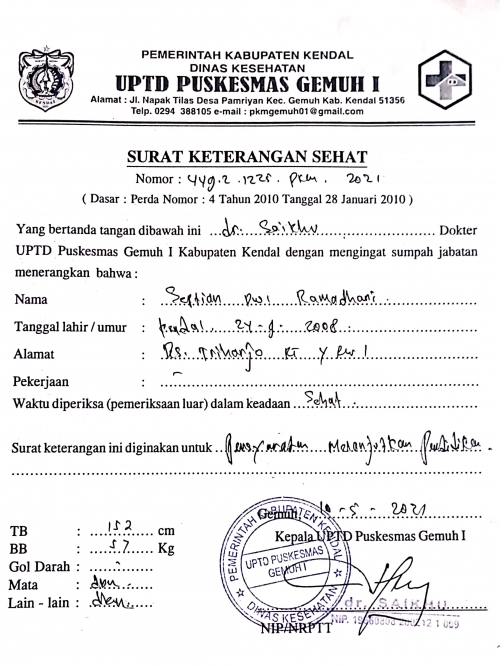 PEMERINTAH KABUPATEN KENDAL
DINAS KESEHATAN
UPTD PUSKESMAS GEMUH I
Alamat : Jl. Napak Tilas Desa Pamriyan Kec. Gemuh Kab. Kendal 51356
Telp. 0294 388105 e-mail : pkmgemuh01@gmail.com
SURAT KETERANGAN SEHAT
Nomor : 449.2 . 1225 . pkm . 2021
( Dasar : Perda Nomor : 4 Tahun 2010 Tanggal 28 Januari 2010 )
Yang bertanda tangan dibawah ini ...dr. Saikhu... Dokter
UPTD Puskesmas Gemuh I Kabupaten Kendal dengan mengingat sumpah jabatan
menerangkan bahwa :
Nama : Septian Dwi Ramadhani
Tanggal lahir / umur : Kendal, 24 - 9 - 2008
Alamat : Ds. Triharjo RT Y RW 1
Pekerjaan : -
Waktu diperiksa (pemeriksaan luar) dalam keadaan Sehat
Surat keterangan ini diginakan untuk Persyaratan Melanjutkan Pendidikan
Gemuh, 10 - 5 - 2021
Kepala UPTD Puskesmas Gemuh I
TB : 152 cm
BB : 57 Kg
Gol Darah : -
Mata :
Lain - lain :
PEMERINTAH KABUPATEN KENDAL
UPTD PUSKESMAS
GEMUH I
DINAS KESEHATAN
dr. SAIKHU
NIP/NRPTT